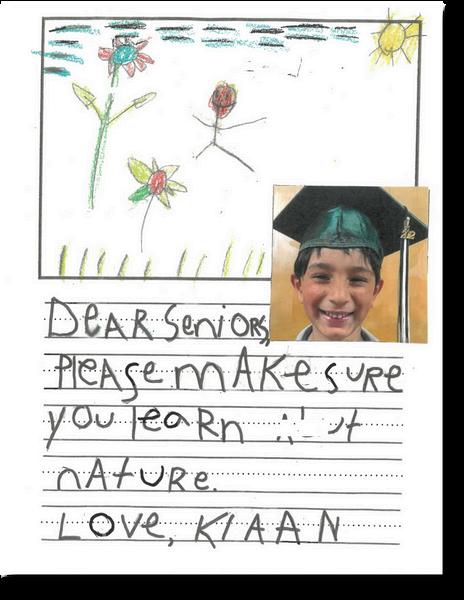 DeAR SeniORS,
PleASe mAKe suRe
you leaRn
nAtuRe.
LOve, KIAAN